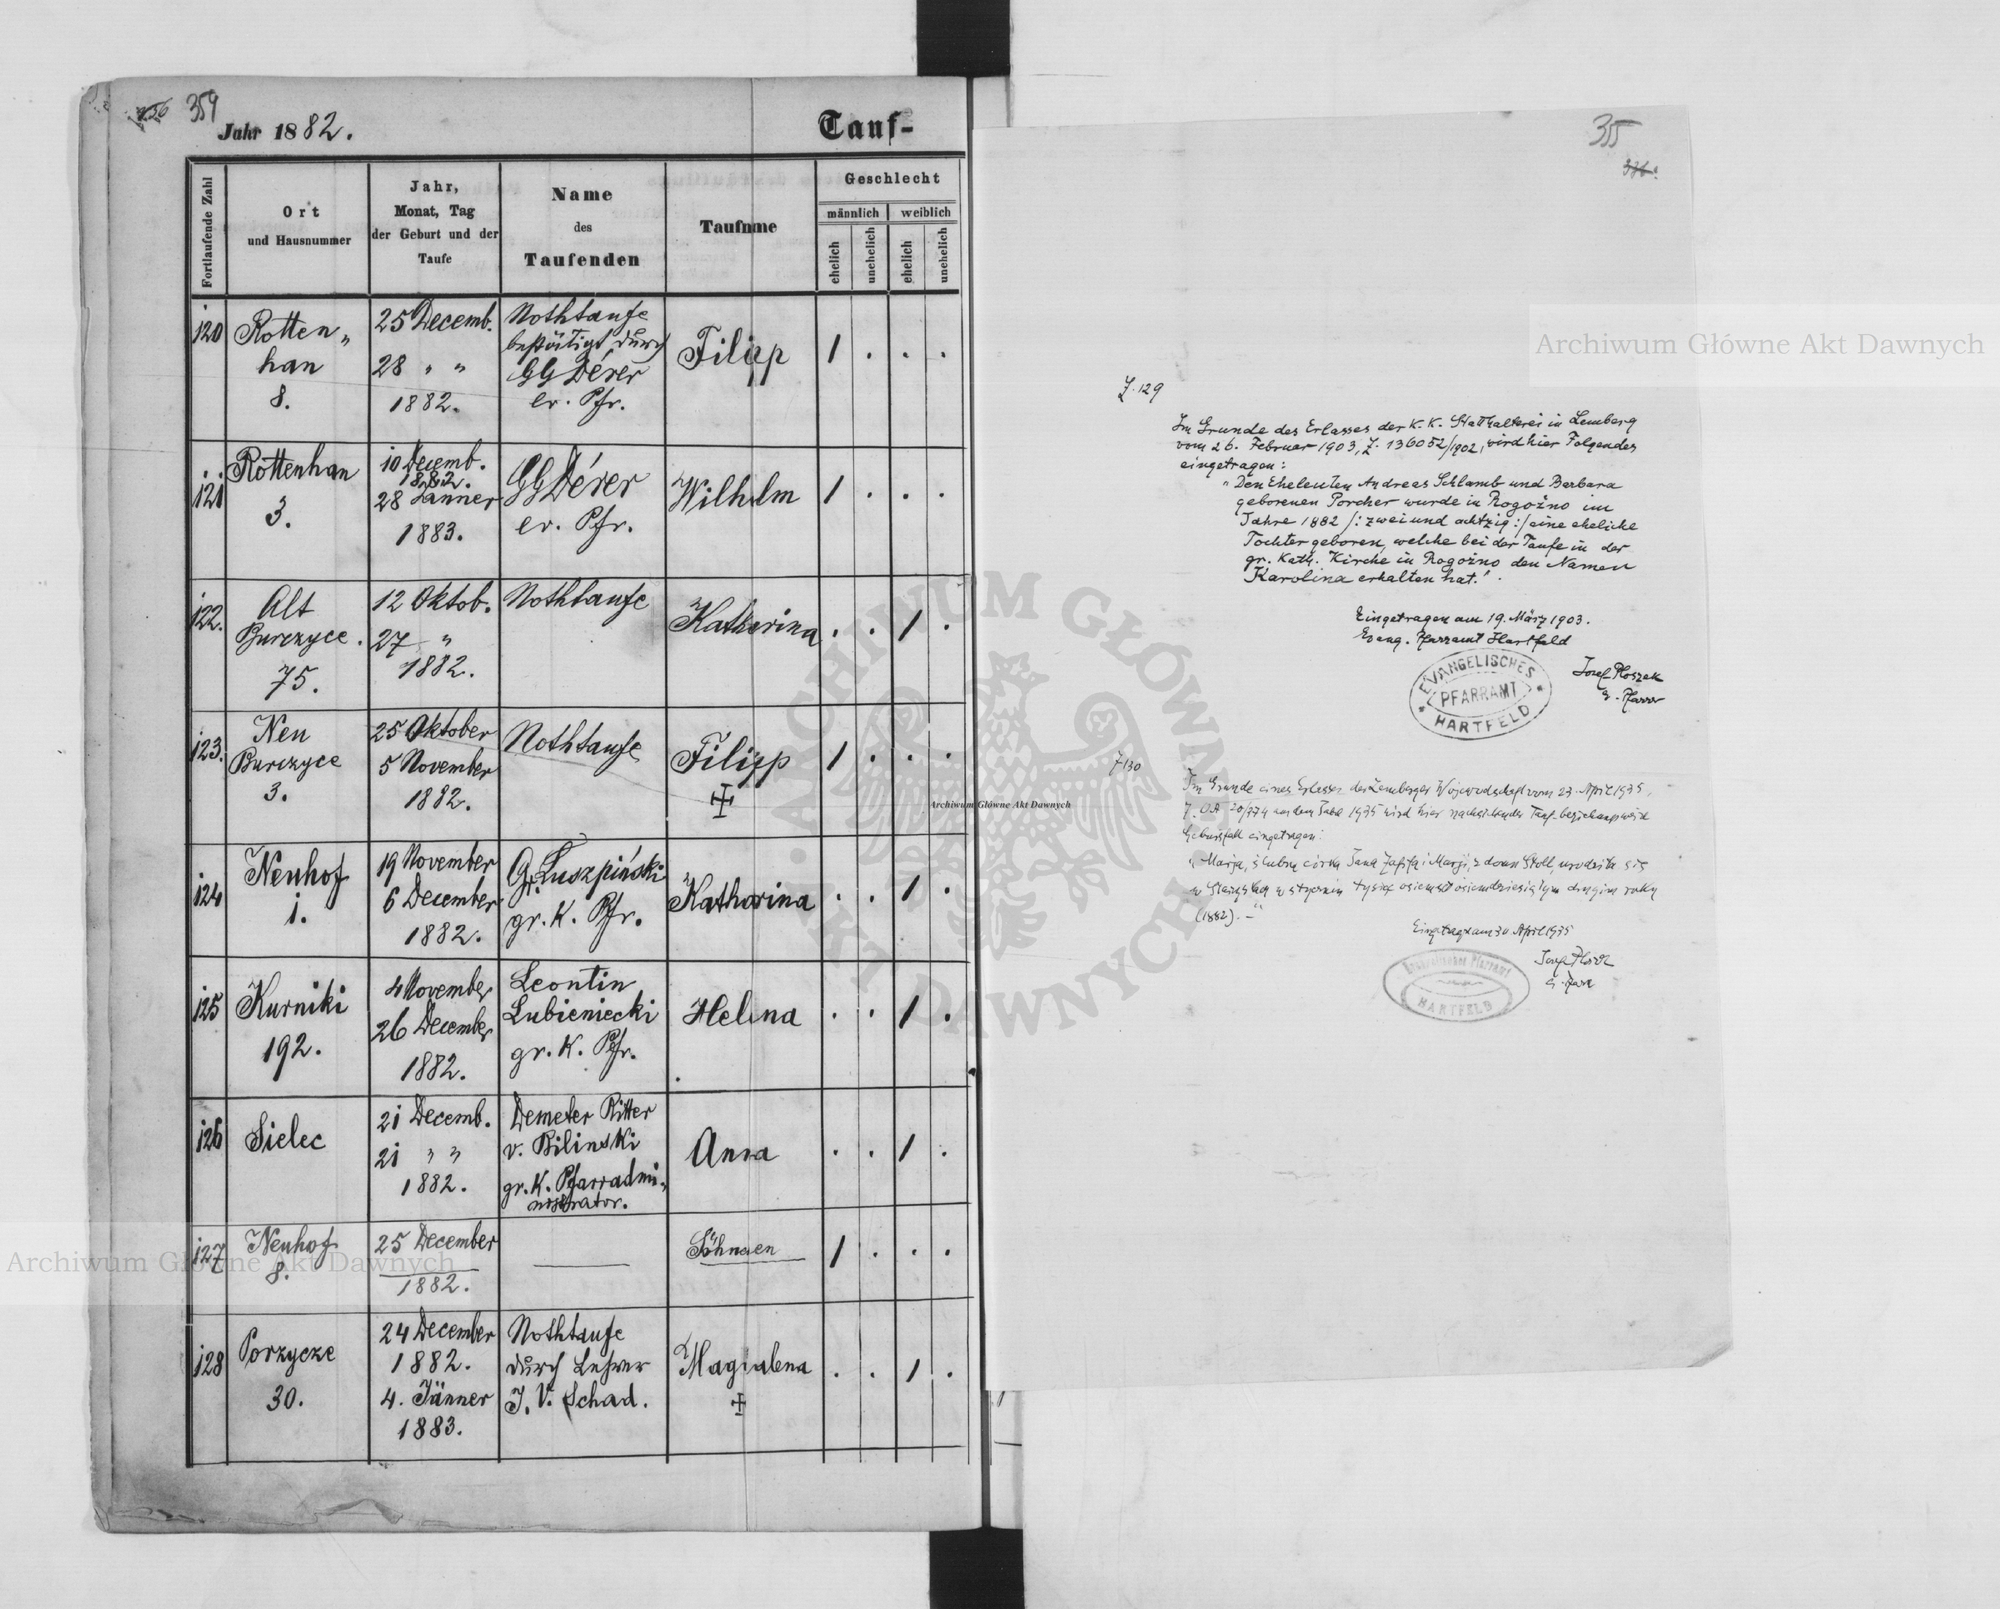 359
Jahr 1882.
Tauf-
Fortlaufende Zahl
Ort
und Hausnummer
Jahr,
Monat, Tag
der Geburt und der
Taufe
Name
des
Taufenden
Taufnme
Geschlecht
männlich
weiblich
ehelich
unehelich
ehelich
unehelich
120
Rotten„
han
8.
25 Decemb.
28 " "
1882.
Nothtaufe
bestätigt durch
GG Dérer
ev. Pfr.
Filipp
1 . . .
121
Rottenhan
3.
10 Decemb.
1882.
28 Jänner
1883.
GG Dérer
ev. Pfr.
Wilhelm
1 . . .
122.
Alt
Burczyce.
75.
12 Oktob.
27 "
1882.
Nothtaufe
Katharina
. . 1 .
123.
Neu
Burczyce
3.
25 Oktober
5 November
1882.
Nothtaufe
Filipp
1 . . .
124
Neuhof
1.
19 November
6 December
1882.
Gr. Luszpiński
gr. K. Pfr.
Katharina
. . 1 .
125
Kurniki
192.
4 November
26 December
1882.
Leontin
Lubieniecki
gr. K. Pfr.
Helena
. . 1 .
126
Sielec
21 Decemb.
21 " "
1882.
Demeter Ritter
v. Bilinski
gr. K. Pfarradmi„
nistrator.
Anna
. . 1 .
127
Neuhof
8.
25 December
1882.
Söhnchen
1 . . .
128
Porzycze
30.
24 December
1882.
4. Jänner
1883.
Nothtaufe
durch Lehrer
J. V. Schad.
Magdalena
. . 1 .
355
Z. 129
Im Grunde des Erlasses der K. K. Statthalterei in Lemberg
vom 26. Februar 1903, Z. 136052/1902, wird hier Folgendes
eingetragen:
"Den Eheleuten Andreas Schlamb und Barbara
geborenen Porcher wurde in Rogoźno im
Jahre 1882 /: zwei und achtzig :/ eine eheliche
Tochter geboren, welche bei der Taufe in der
gr. Kath. Kirche in Rogoźno den Namen
Karolina erhalten hat."
Eingetragen am 19. März 1903.
Evang. Pfarramt Hartfeld
EVANGELISCHES
PFARRAMT
HARTFELD
Josef Ploszek
ev. Pfarrer
Z 130
Im Grunde eines Erlasses der Lemberger Wojewodschaft vom 23. April 1935,
aus dem Jahre 1935 wird hier nachstehender Tauf- beziehungsweise
Geburtsfall eingetragen:
"Marja, ślubna córka Jana i Marji, z domu Stoll, urodziła się
w styczniu tysiąc osiemset ośmdziesiątym drugim roku
(1882). —"
Eingetragen am 30 April 1935
Evangelisches Pfarramt
HARTFELD
Josef Ploszek
ev. Pfarrer
Archiwum Główne Akt Dawnych
ARCHIWUM GŁÓWNE AKT DAWNYCH
Archiwum Główne Akt Dawnych
Archiwum Główne Akt Dawnych